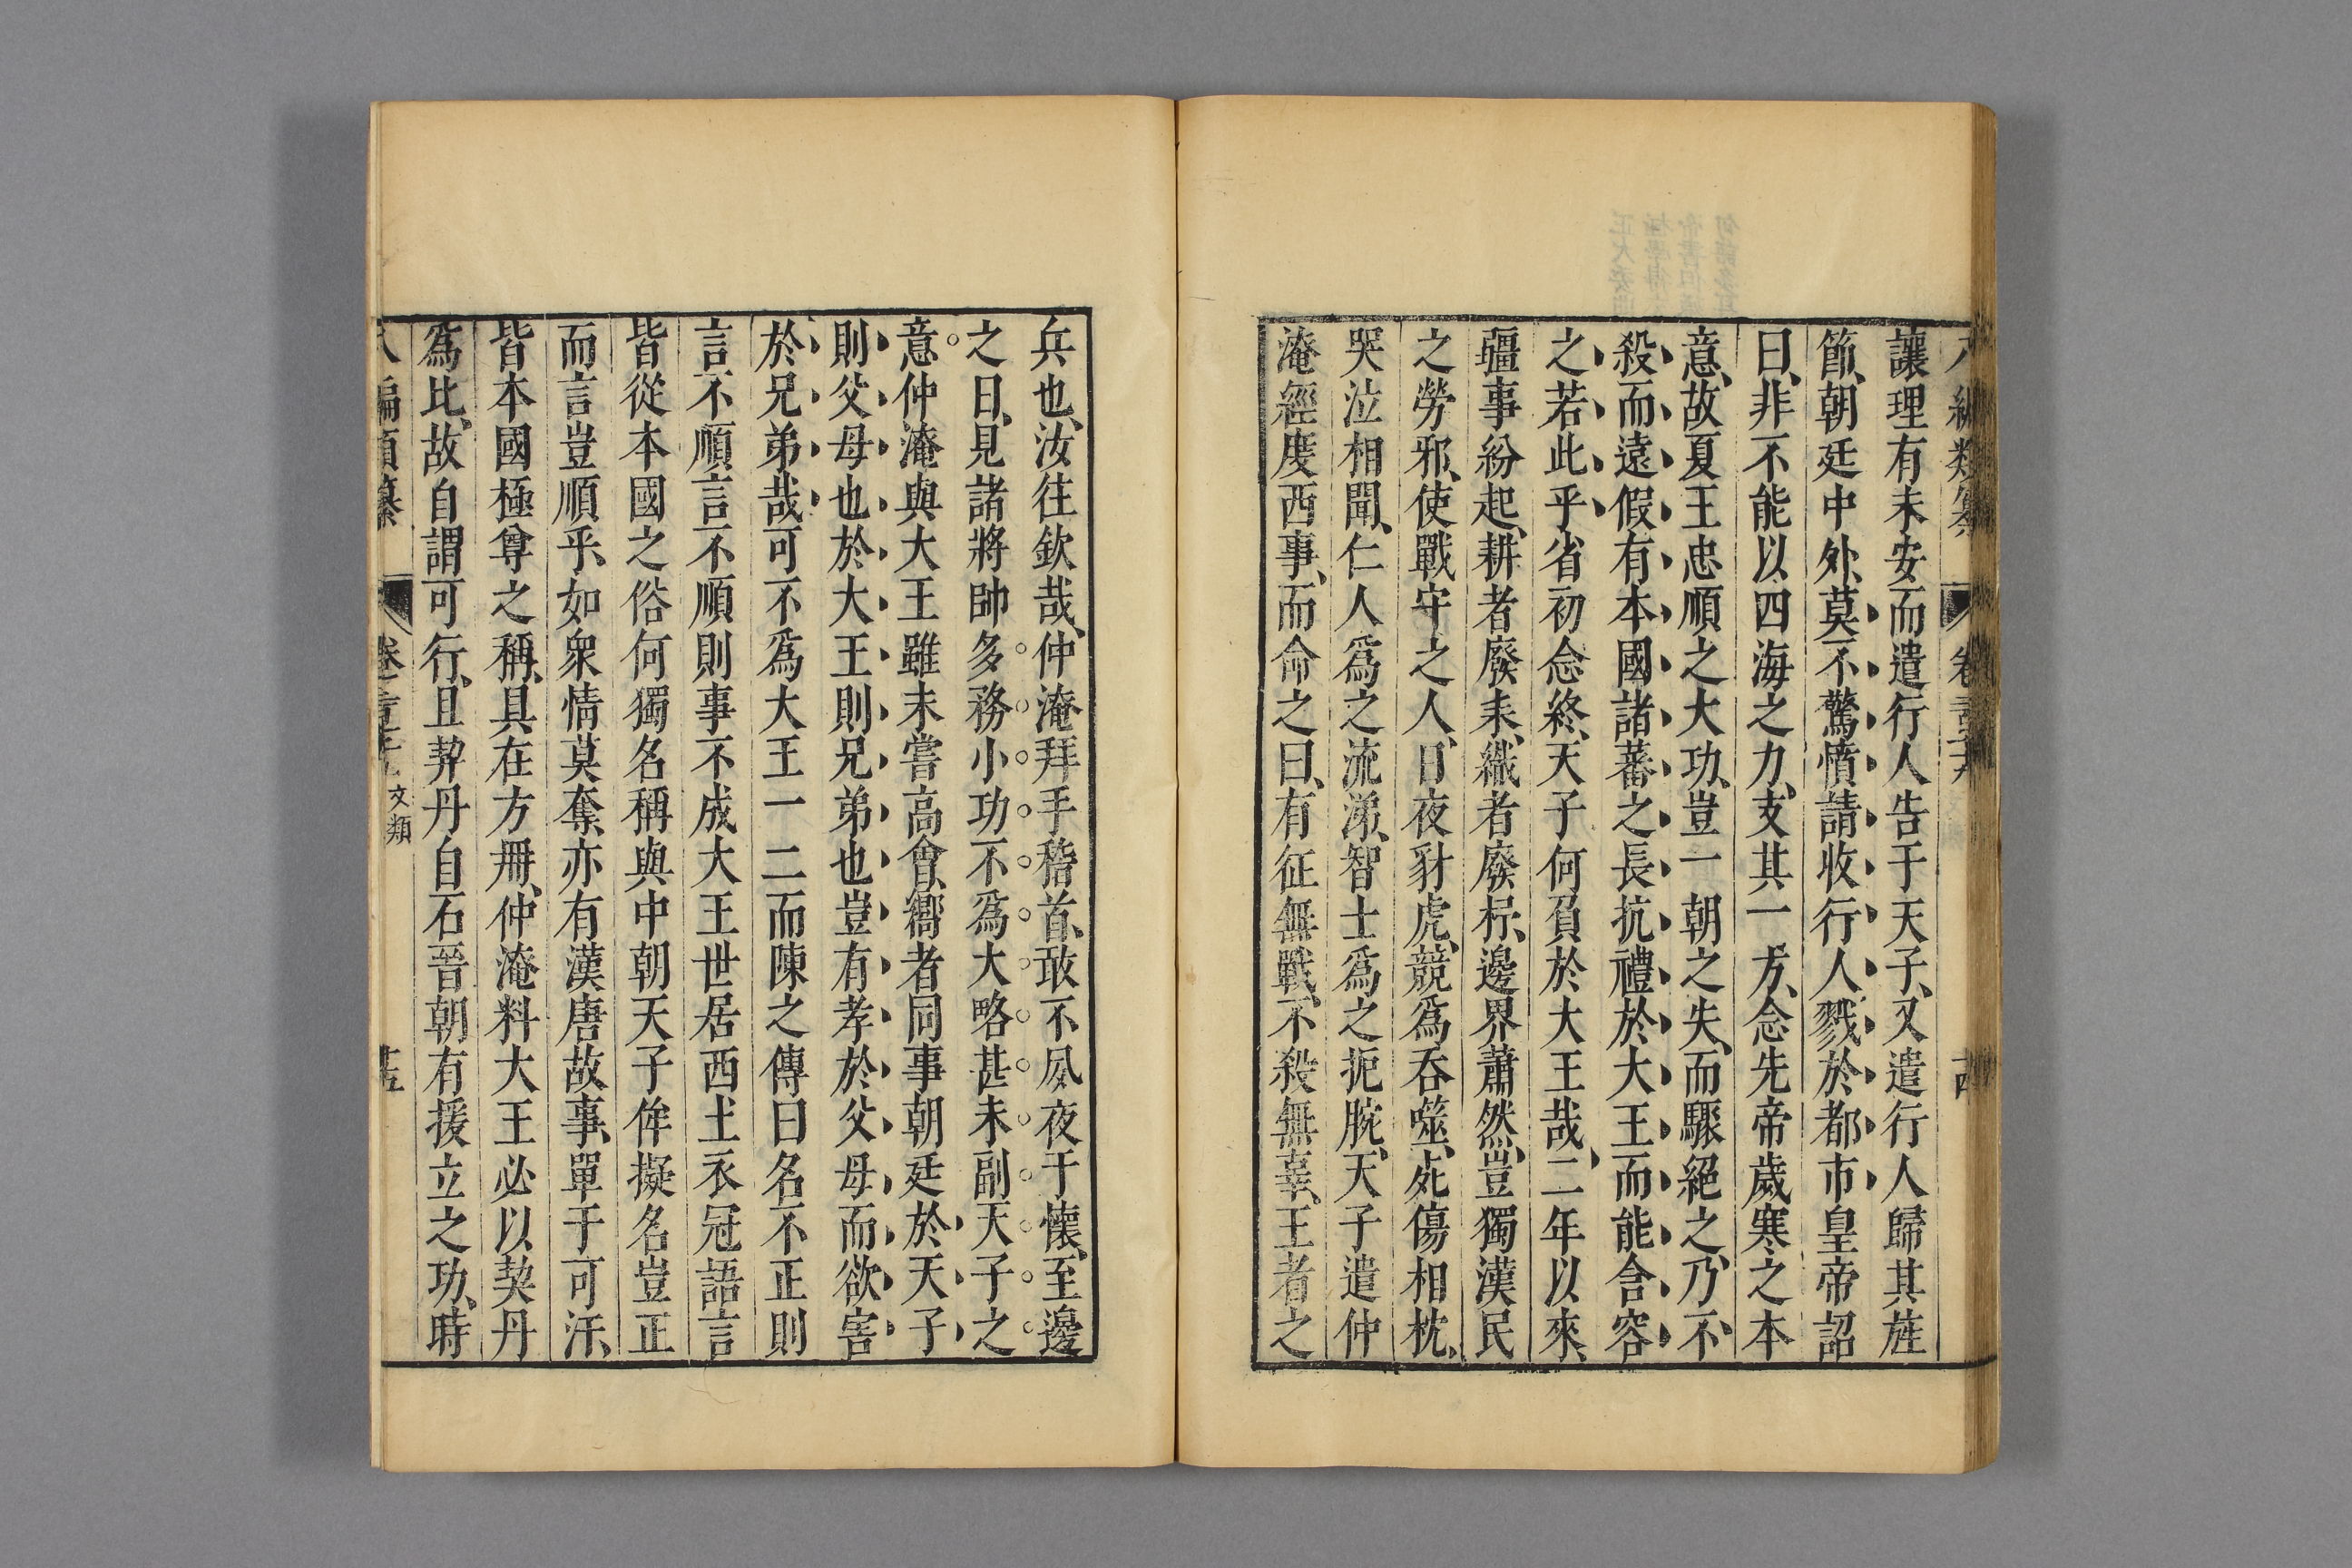 讓理有未安而遣行人告于天子又遣行人歸其旌
節朝廷中外莫不驚憤請收行人戮於都市皇帝詔
曰非不能以四海之力支其一方念先帝歲寒之本
意故夏王忠順之大功豈一朝之失而驟絕之乃不
殺而遠假有本國諸蕃之長抗禮於大王而能含容
之若此乎省初念終天子何負於大王哉二年以來
疆事紛起耕者廢耒織者廢杼邊界蕭然豈獨漢民
之勞邪使戰守之人日夜豺虎競爲吞噬死傷相枕
哭泣相聞仁人爲之流涕智士爲之扼腕天子遣仲
淹經度西事而命之曰有征無戰不殺無辜王者之
兵也汝往欽哉仲淹拜手稽首敢不夙夜于懷至邊
之日見諸將帥多務小功不爲大略甚未副天子之
意仲淹與大王雖未嘗高會嚮者同事朝廷於天子
則父母也於大王則兄弟也豈有孝於父母而欲害
於兄弟哉可不爲大王一二而陳之傳曰名不正則
言不順言不順則事不成大王世居西土衣冠語言
皆從本國之俗何獨名稱與中朝天子侔擬名豈正
而言豈順乎如衆情莫奪亦有漢唐故事單于可汗
皆本國極尊之稱具在方冊仲淹料大王必以契丹
爲比故自謂可行且契丹自石晉朝有援立之功時
文類